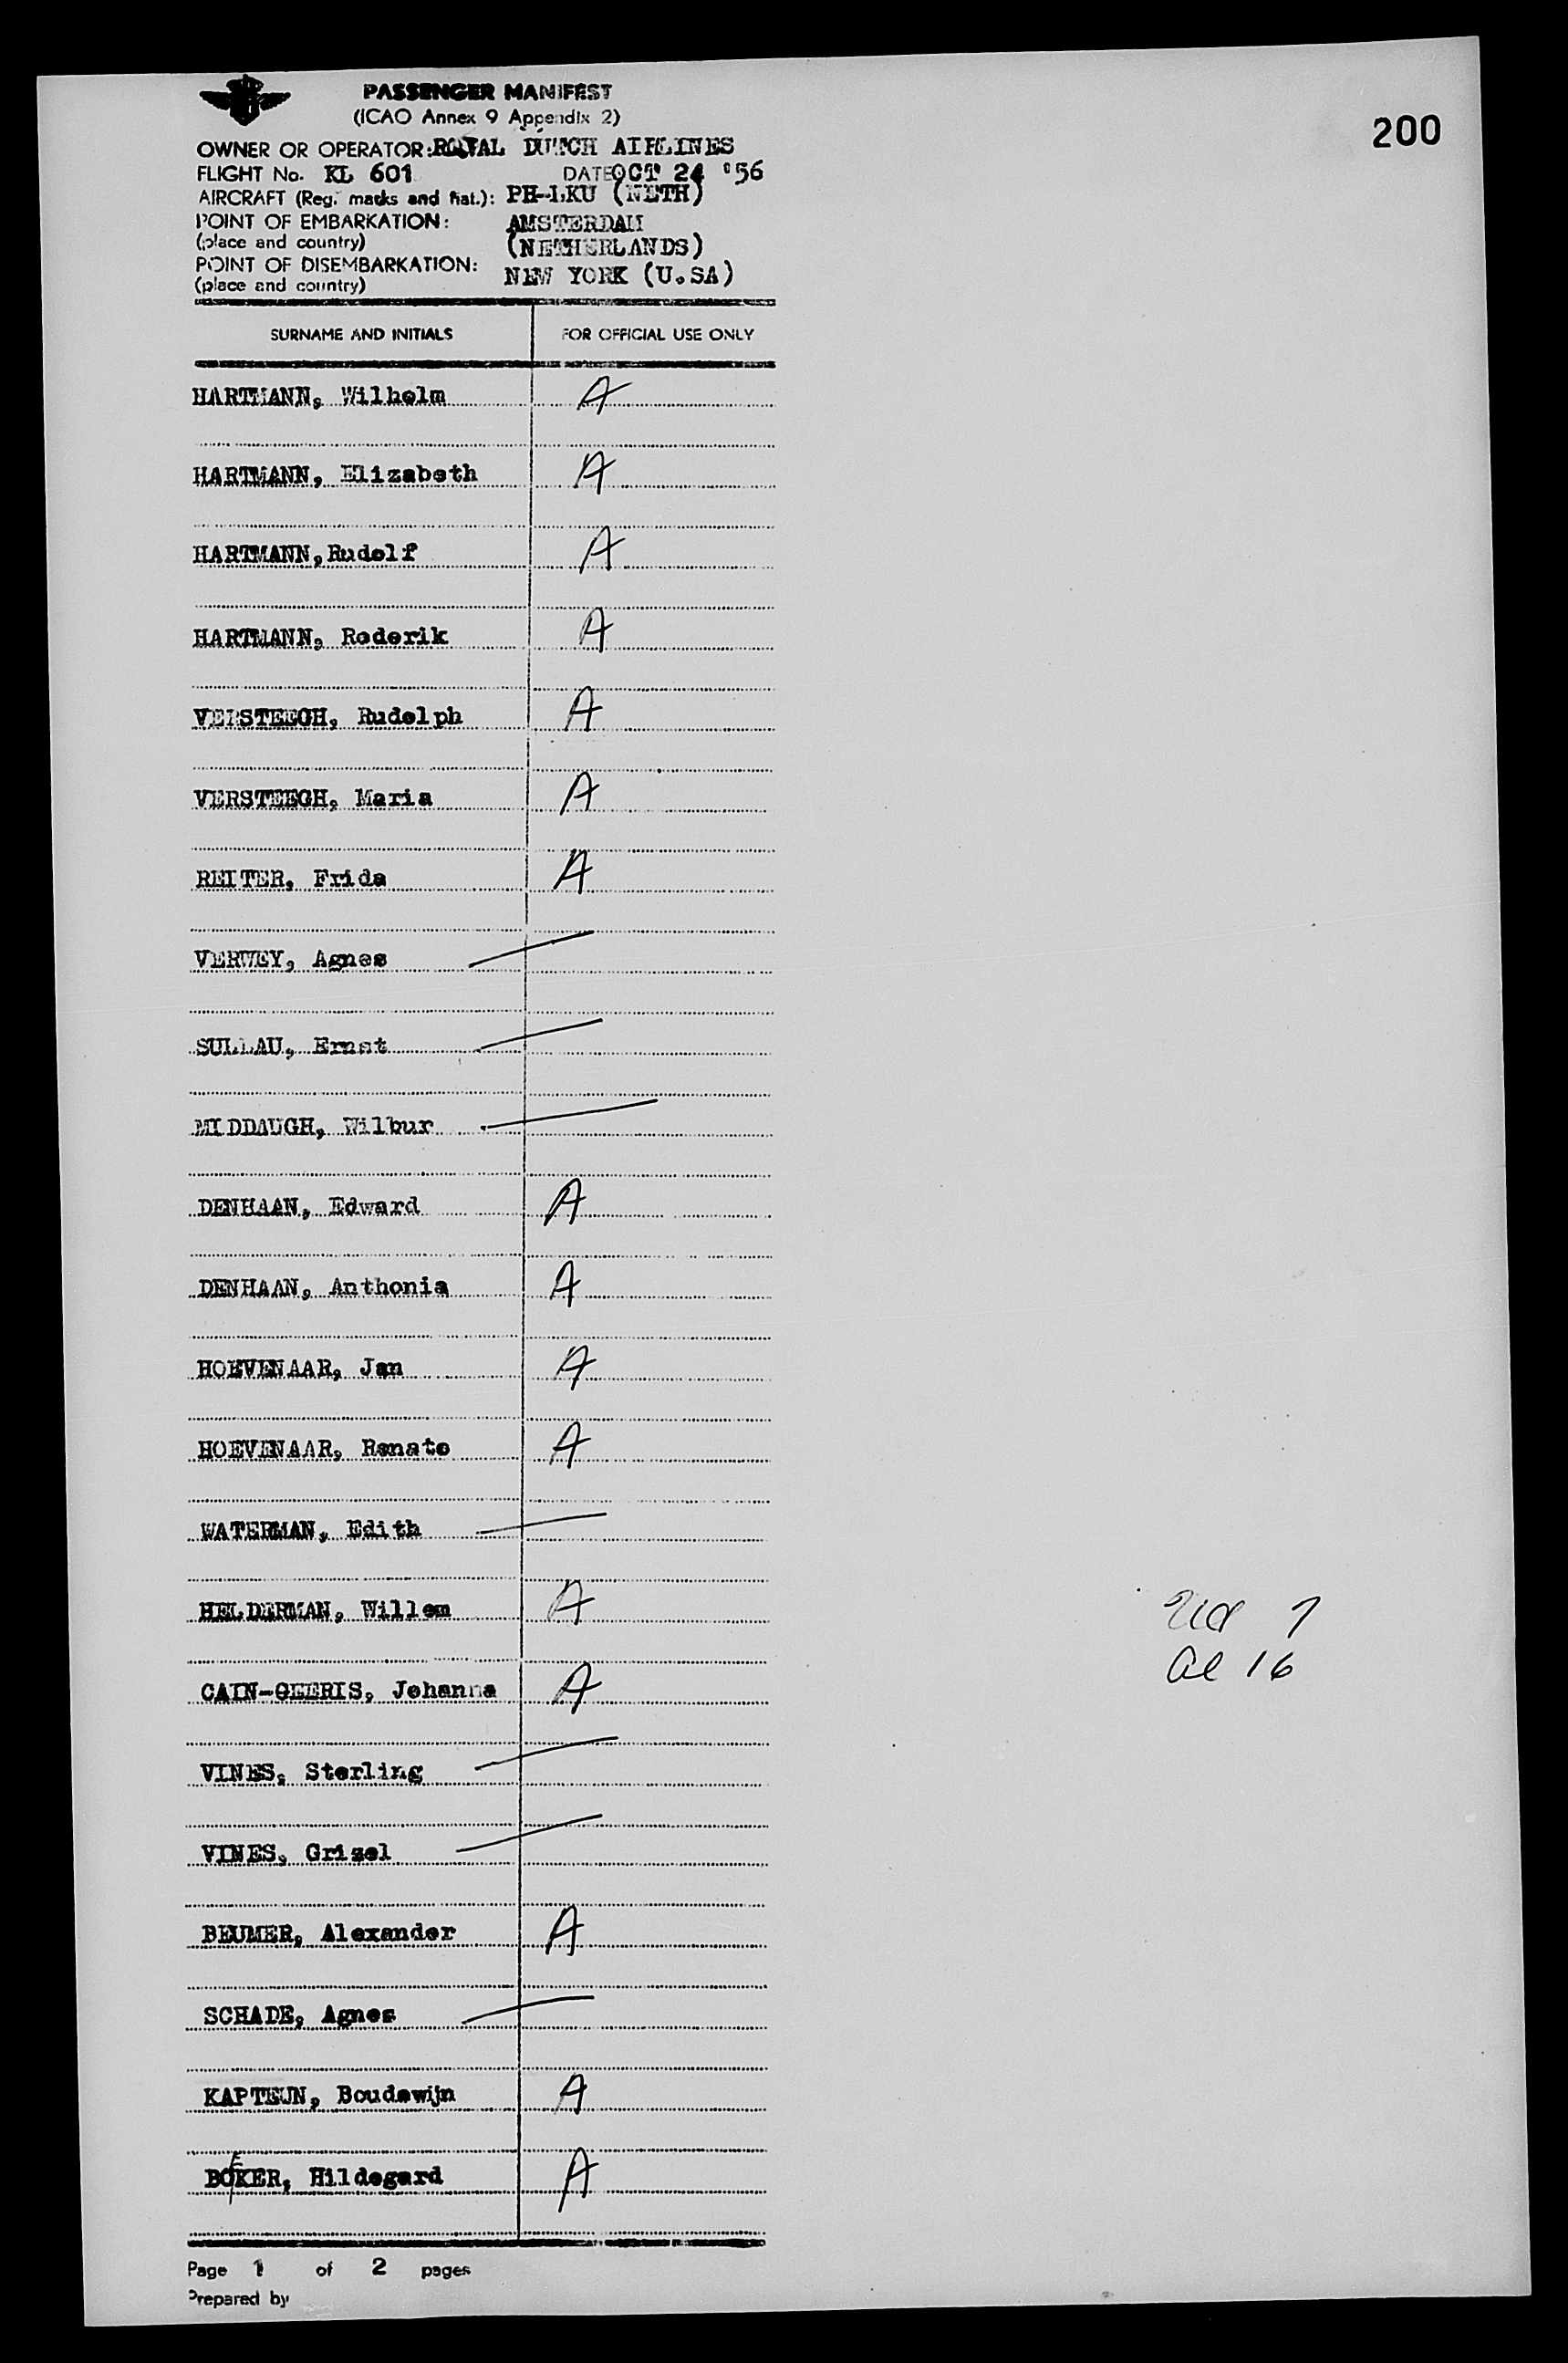 PASSENGER MANIFEST
(ICAO Annex 9 Appendix 2)
200
OWNER OR OPERATOR: ROYAL DUTCH AIRLINES
FLIGHT No. KL 601 DATE OCT 24 '56
AIRCRAFT (Reg. marks and nat.): PH-LKU (NETH)
POINT OF EMBARKATION: AMSTERDAM
(place and country) (NETHERLANDS)
POINT OF DISEMBARKATION:
(place and country) NEW YORK (U.SA)
SURNAME AND INITIALS FOR OFFICIAL USE ONLY
HARTMANN, Wilhelm A
HARTMANN, Elizabeth A
HARTMANN, Rudolf A
HARTMANN, Roderik A
VERSTEEGH, Rudolph A
VERSTEEGH, Maria A
REITER, Frida A
VERWEY, Agnes
SULLAU, Ernst
MIDDAUGH, Wilbur
DENHAAN, Edward A
DENHAAN, Anthonia A
HOEVENAAR, Jan A
HOEVENAAR, Renate A
WATERMAN, Edith
HELDERMAN, Willem A
7
CAIN-GEERIS, Johanna A
al 16
VINES, Sterling
VINES, Grizel
BEUMER, Alexander A
SCHADE, Agnes
KAPTEIJN, Boudewijn A
BÖKER, Hildegard A
Page 1 of 2 pages
Prepared by